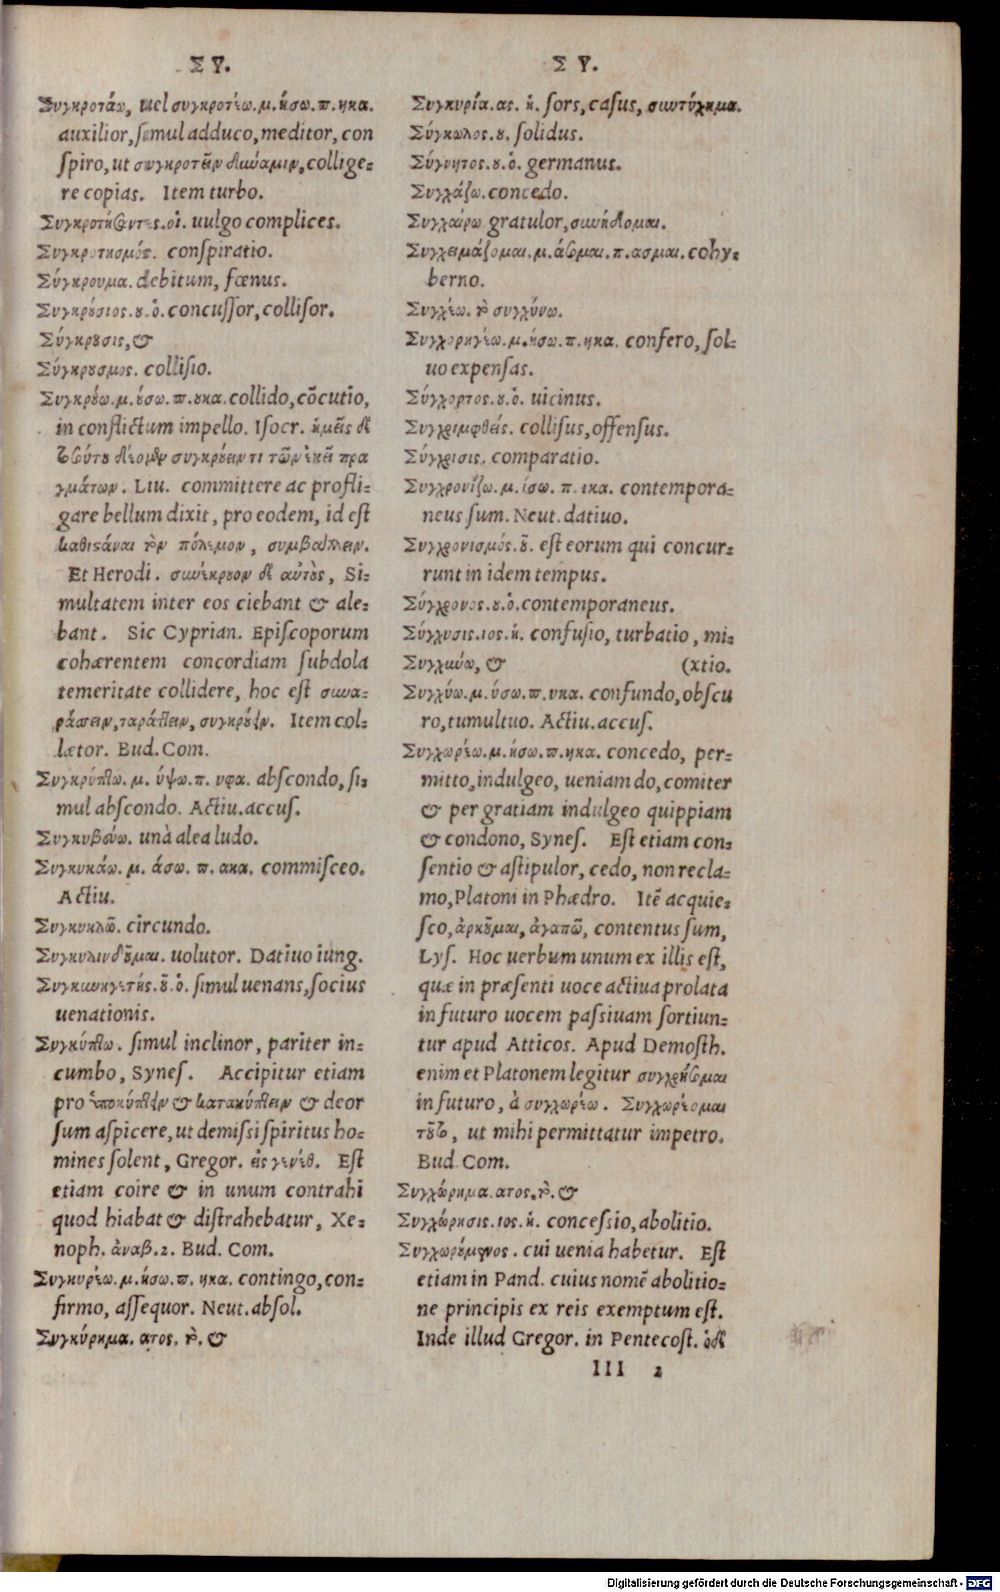 ΣΥ.
Συγκροτάω, uel συγκροτέω.μ.ήσω.π.ηκα.
auxilior, simul adduco, meditor, con
spiro, ut συγκροτεῖν δύναμιν, collige-
re copias. Item turbo.
Συγκροτήσαντες.οἱ. uulgo complices.
Συγκροτησμός. conspiratio.
Σύγκρουμα. debitum, fœnus.
Συγκρούσιος.ου.ὁ. concussor, collisor.
Σύγκρουσις, &
Σύγκρουσμος. collisio.
Συγκρούω.μ.ούσω.π.ουκα. collido, cōcutio,
in conflictum impello. Isocr. ἡμεῖς δὲ
δέον συγκρούειν τι τῶν ἐκεῖ πρα
γμάτων. Liu. committere ac profli-
gare bellum dixit, pro eodem, id est
καθιστάναι τὸν πόλεμον, συμβάλλειν.
Et Herodi. συνέκρουον δὲ αὐτοὺς, Si-
multatem inter eos ciebant & ale-
bant. Sic Cyprian. Episcoporum
cohærentem concordiam subdola
temeritate collidere, hoc est συνα-
ράσσειν, ταράττειν, συγκρούειν. Item col-
lætor. Bud. Com.
Συγκρύπτω. μ. ύψω.π. υφα. abscondo, si-
mul abscondo. Actiu. accus.
Συγκυβεύω. unà alea ludo.
Συγκυκάω. μ. άσω. π. ακα. commisceo.
Actiu.
Συγκυκλῶ. circundo.
Συγκυλινδοῦμαι. uolutor. Datiuo iung.
Συγκυνηγετής.οῦ.ὁ. simul uenans, socius
uenationis.
Συγκύπτω. simul inclinor, pariter in-
cumbo, Synes. Accipitur etiam
pro ὑποκύπτειν & κατακύπτειν & deor
sum aspicere, ut demissi spiritus ho-
mines solent, Gregor. εἰς γενέθ. Est
etiam coire & in unum contrahi
quod hiabat & distrahebatur, Xe-
noph. ἀναβ.2. Bud. Com.
Συγκυρέω.μ.ήσω.π. ηκα. contingo, con-
firmo, assequor. Neut. absol.
Συγκύρημα. ατος. τὸ. &
Σ Υ.
Συγκυρία.ας. ἡ. sors, casus, συντύχημα.
Σύγκωλος.ου. solidus.
Σύγνητος.ου.ὁ. germanus.
Συγχάζω. concedo.
Συγχαίρω gratulor, συνήδομαι.
Συγχειμάζομαι.μ.άσομαι.π.ασμαι. cohy-
berno.
Συγχέω. τὸ συγχύνω.
Συγχορηγέω.μ.ήσω.π.ηκα. confero, sol-
uo expensas.
Σύγχορτος.ου.ὁ. uicinus.
Συγχριμφθείς. collisus, offensus.
Σύγχρισις. comparatio.
Συγχρονίζω.μ.ίσω. π. ικα. contempora-
neus sum. Neut. datiuo.
Συγχρονισμός.οῦ. est eorum qui concur-
runt in idem tempus.
Σύγχρονος.ου.ὁ. contemporaneus.
Σύγχυσις.ιος.ἡ. confusio, turbatio, mi-
Συγχωνύω, & (xtio.
Συγχύω.μ.ύσω.π.υκα. confundo, obscu
ro, tumultuo. Actiu. accus.
Συγχωρέω.μ.ήσω.π.ηκα. concedo, per-
mitto, indulgeo, ueniam do, comiter
& per gratiam indulgeo quippiam
& condono, Synes. Est etiam con-
sentio & astipulor, cedo, non recla-
mo, Platoni in Phædro. Itē acquie-
sco, ἀρκοῦμαι, ἀγαπῶ, contentus sum,
Lys. Hoc uerbum unum ex illis est,
quæ in præsenti uoce actiua prolata
in futuro uocem passiuam sortiun-
tur apud Atticos. Apud Demosth.
enim et Platonem legitur συγχωρήσομαι
in futuro, à συγχωρέω. Συγχωρέομαι
τοῦτο, ut mihi permittatur impetro.
Bud. Com.
Συγχώρημα. ατος. τὸ. &
Συγχώρησις.ιος.ἡ. concessio, abolitio.
Συγχωρούμενος. cui uenia habetur. Est
etiam in Pand. cuius nomē abolitio-
ne principis ex reis exemptum est.
Inde illud Gregor. in Pentecost. ὁ δὲ
III 2
Digitalisierung gefördert durch die Deutsche Forschungsgemeinschaft - DFG